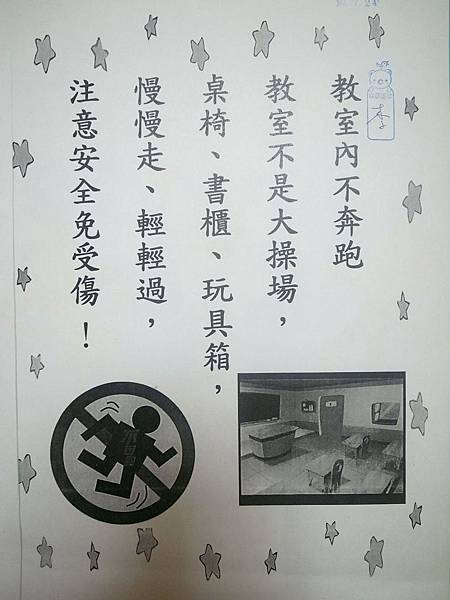 教室內不奔跑
教室不是大操場，
桌椅、書櫃、玩具箱，
慢慢走、輕輕過，
注意安全免受傷！
李